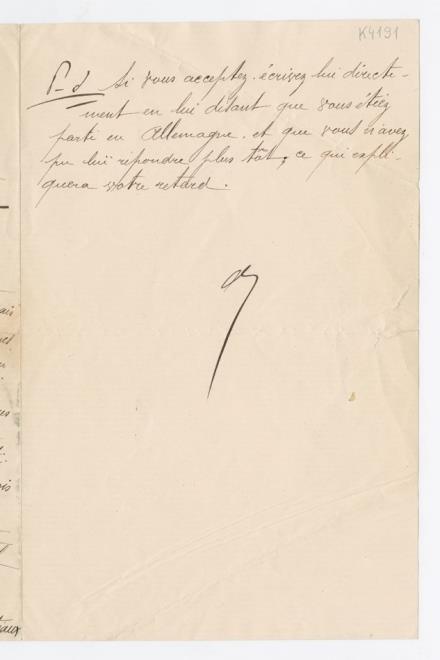 K4191
P-S Si vous acceptez. écrivez lui directe-
ment en lui disant que vous étiez
parti en Allemagne. et que vous n'avez
pu lui répondre plus tôt, ce qui expli-
quera votre retard.